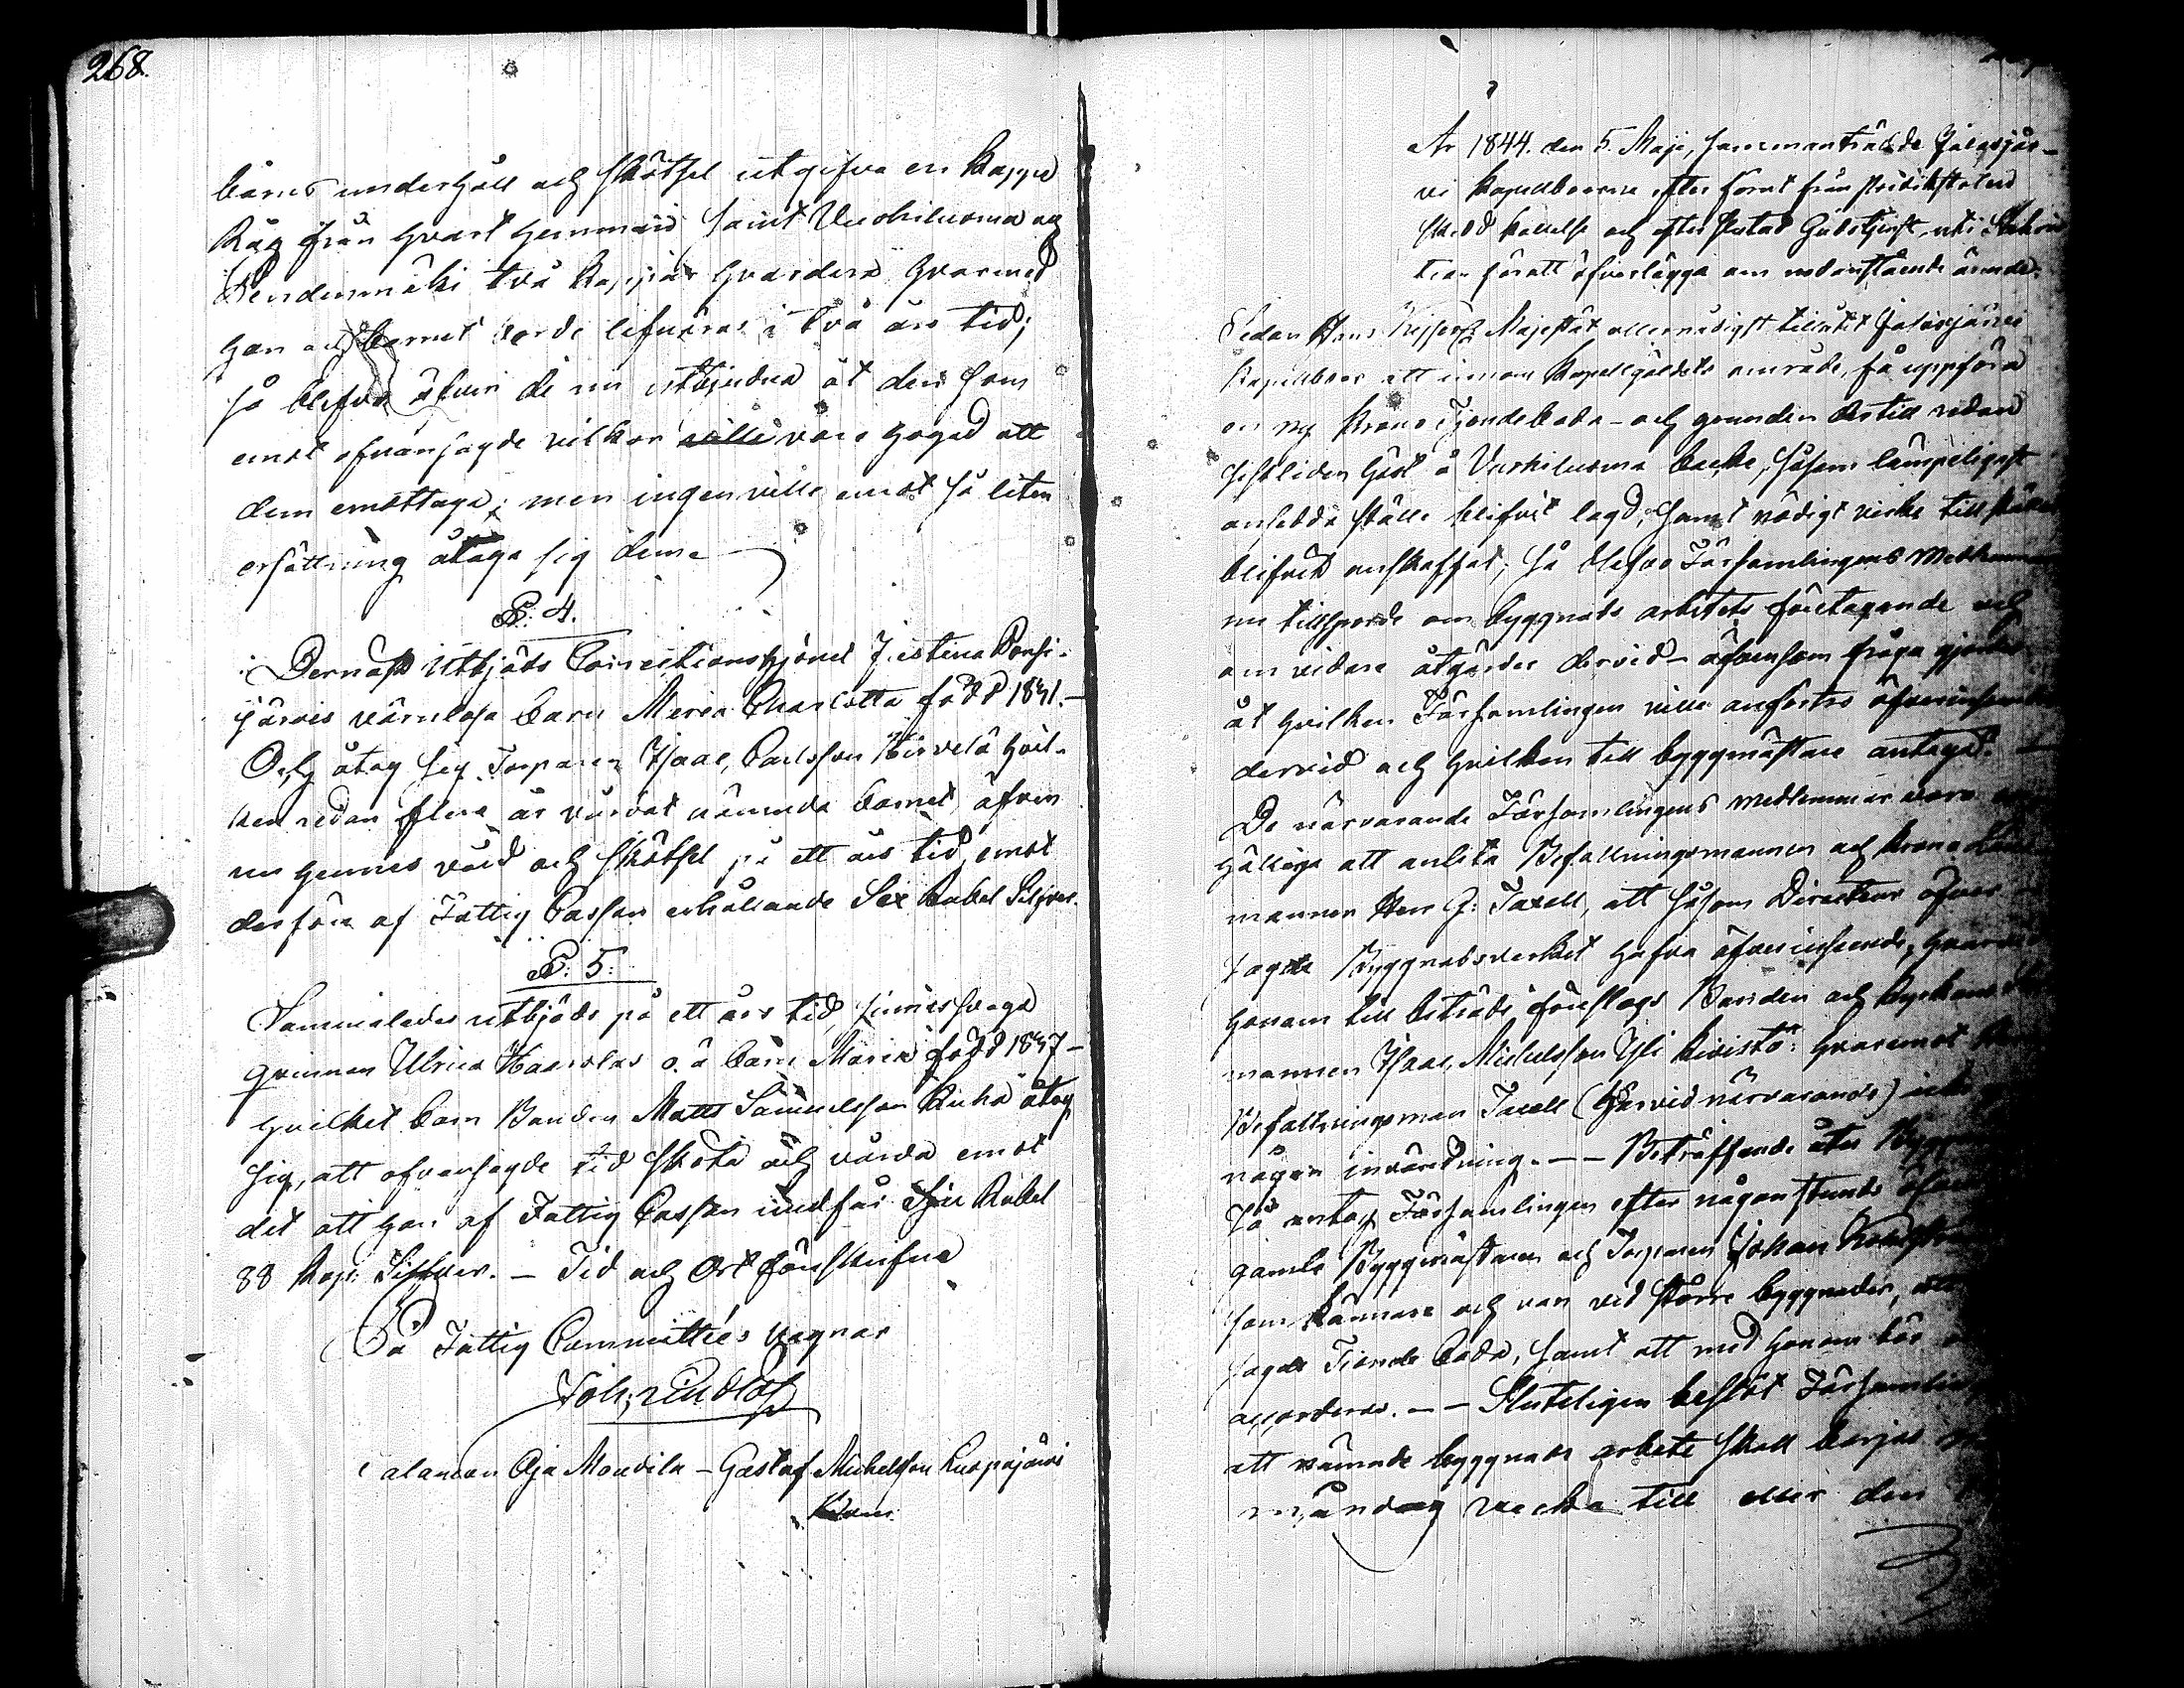 268.
barns underhåll och skötsel utgifva en kappe
Råg från hvart hemman samt Vuohiluoma och
Pendinmäki två kappar hvardera hvarmed
han och barnet borde lifnäras i två års tid;
så blefvo äfven de nu utbjudna åt den som
emot ofvansagde vilkor ville vore hogad att
dem emottaga; men ingen ville emot så liten
ersättning åtaga sig denne
P. 4.
Dernäst utbjöds Correctionshjonet Justina Ponsi-
järvis värnlösa barn Maria Charlotta född 1841.-
Och åtog sig Torparen Isaac Carlsson Hirvelä hvil-
ken redan flera år vårdat nämnde barnet, äfven
nu hennes vård och skötsel på ett års tid, emot
derföre af Fattig Cassan erhållande Sex Rubel Silfver.
P. 5.
Sammaledes utbjöds på ett års tid sinnessvaga
qvinnan Ulrica o. ä barn Maria född 1837 -
hvilket barn Bonden Matts Samuelsson åtog
sig, att ofvansagde tid sköta och vårda emot
det att han af Fattig Cassan undfår Rubel
88 kop. Silfver. - Tid och Ort förutskrifne
På Fattig Committées vägnar
Joh:
Salomon Oja Mandila - Gustaf Michelsson Luopajärvi
År 1844. den 5. Maji, sammanträdde Jalasjär-
vi Kapellboerne efter förut från Predikstolen
skedd kallelse och efter slutad Gudstjenst, uti Sakris-
tian för att öfverlägga om nedanstående ärende.
Sedan Hans Kejserl. Majestät allernådigst tillåtit Jalasjärvi
Kapellboer att innom Kapellgäldets område, få uppföra
en ny Krono Tjondeboda - och grunden dertill redan
sistliden höst å Vuohiluoma backe, såsom lämpeligast
ansedda ställe blifvit lagd, samt nödigt virke till stället
blifvit anskaffat; så blefvo Församlingens Medlemmar
nu tillsporde om byggnads arbetets företagande och
om vidare åtgärder dervid - äfvensom fråga gjordes
åt hvilken Församlingen ville anförtro öfverinseendet
dervid och hvilken till byggmästare antaga.
De närvarande Församlingens medlemmar voro
hällige att anlita Befallningsmannen och Krono Läns-
mannen Herr G: Taxell, att såsom Directeur öfver
sagde Byggnadsverket hafva öfverinseende, hvarvid
honom till biträde föreslogs Bonden och Kyrkovärden
mannen Isaac Michelsson Yli Kivistö: hvaremot
Befallningsman Taxell (härvid närvarande) icke
någon invändning. -- Beträffande åter
så antog Församlingen efter någon stunds
gamle Byggmästaren och Torparen Johan
som kunnare och van vid större byggnader,
sagde Tionde boda, samt att med honom bör
accorderas. -- Sluteligen beslöt Församlingen
att nämnde byggnads arbete skall börjas
måndag vecka till eller den